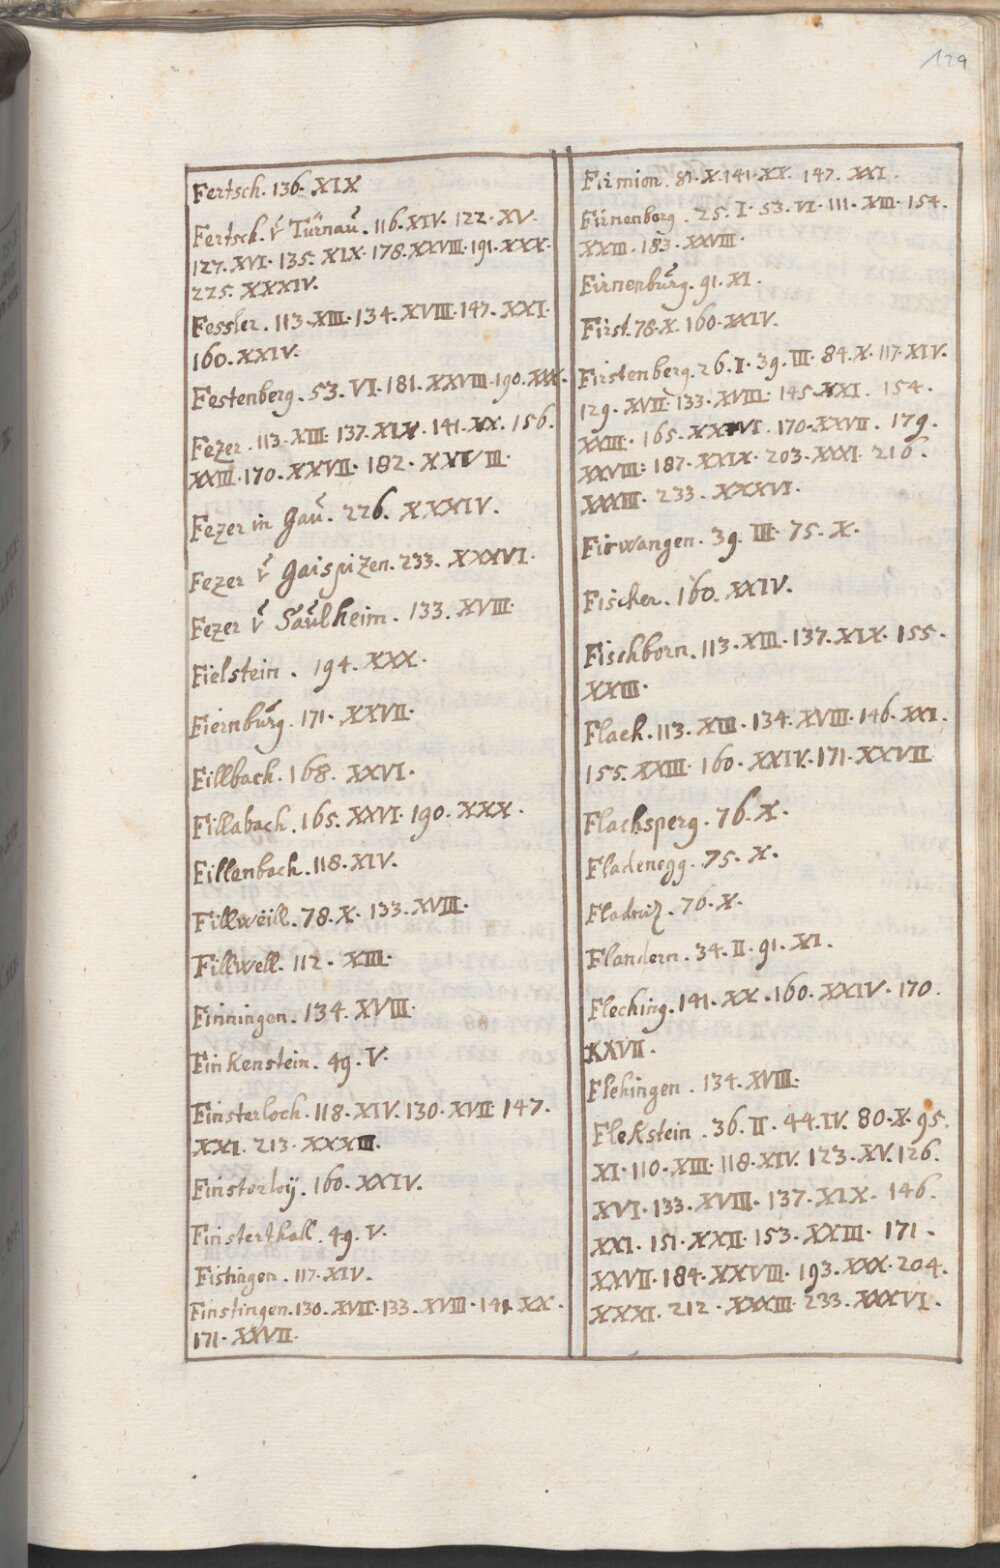 129
Fertsch. 136. XIX
Fertsch. v̄ Türnaŭ. 116. XIV. 122. XV.
127. XVI. 135. XIX. 178. XXVIII. 191. XXX.
225. XXXIV.
Fessler. 113. XIII. 134. XVIII. 147. XXI.
160. XXIV.
Festenberg. 53. VI. 181. XXVIII. 190. XXX.
Fezer. 113. XIII. 137. XIX. 141. XX. 156.
XXIII. 170. XXVII. 182. XXVIII.
Fezer in Gaŭ. 226. XXXIV.
Fezer v̄ Gaispizen. 233. XXXVI.
Fezer v̄ Saŭlheim. 133. XVIII.
Fielstein. 194. XXX.
Fiernbŭrg. 171. XXVII.
Fillbach. 168. XXVI.
Fillabach. 165. XXVI. 190. XXX.
Fillenbach. 118. XIV.
Fillweill. 78. X. 133. XVIII.
Fillwell. 112. XIII.
Finningen. 134. XVIII.
Finkenstein. 49. V.
Finsterloch. 118. XIV. 130. XVII. 147.
XXI. 213. XXXIII.
Finsterloÿ. 160. XXIV.
Finsterthall. 49. V.
Fistingen. 117. XIV.
Finstingen. 130. XVII. 133. XVIII. 141. XX.
171. XXVII.
Firmion. 81. X. 141. XX. 147. XXI.
Firnenberg. 25. I. 53. VI. 111. XIII. 154.
XXIII. 183. XXVIII.
Firnenbŭrg. 91. XI.
First. 78. X. 160. XXIV.
Firstenberg. 26. I. 39. III. 84. X. 117. XIV.
129. XVII. 133. XVIII. 145. XXI. 154.
XXIII. 165. XXVI. 170. XXVII. 179.
XXVIII. 187. XXIX. 203. XXXI. 216.
XXXIII. 233. XXXVI.
Firwangen. 39. III. 75. X.
Fischer. 160. XXIV.
Fischborn. 113. XIII. 137. XIX. 155.
XXIII.
Flach. 113. XIII. 134. XVIII. 146. XXI.
155. XXIII. 160. XXIV. 171. XXVII
Flachsperg. 76. X.
Fladenegg. 75. X.
Fladniz. 76. X.
Flandern. 34. II. 91. XI.
Fleching. 141. XX. 160. XXIV. 170.
XXVII.
Flehingen. 134. XVIII.
Flekstein. 36. II. 44. IV. 80. X. 95.
XI. 110. XIII. 118. XIV. 123. XV. 126.
XVI. 133. XVIII. 137. XIX. 146.
XXI. 151. XXII. 153. XXIII. 171.
XXVII. 184. XXVIII. 193. XXX. 204.
XXXI. 212. XXXIII. 233. XXXVI.